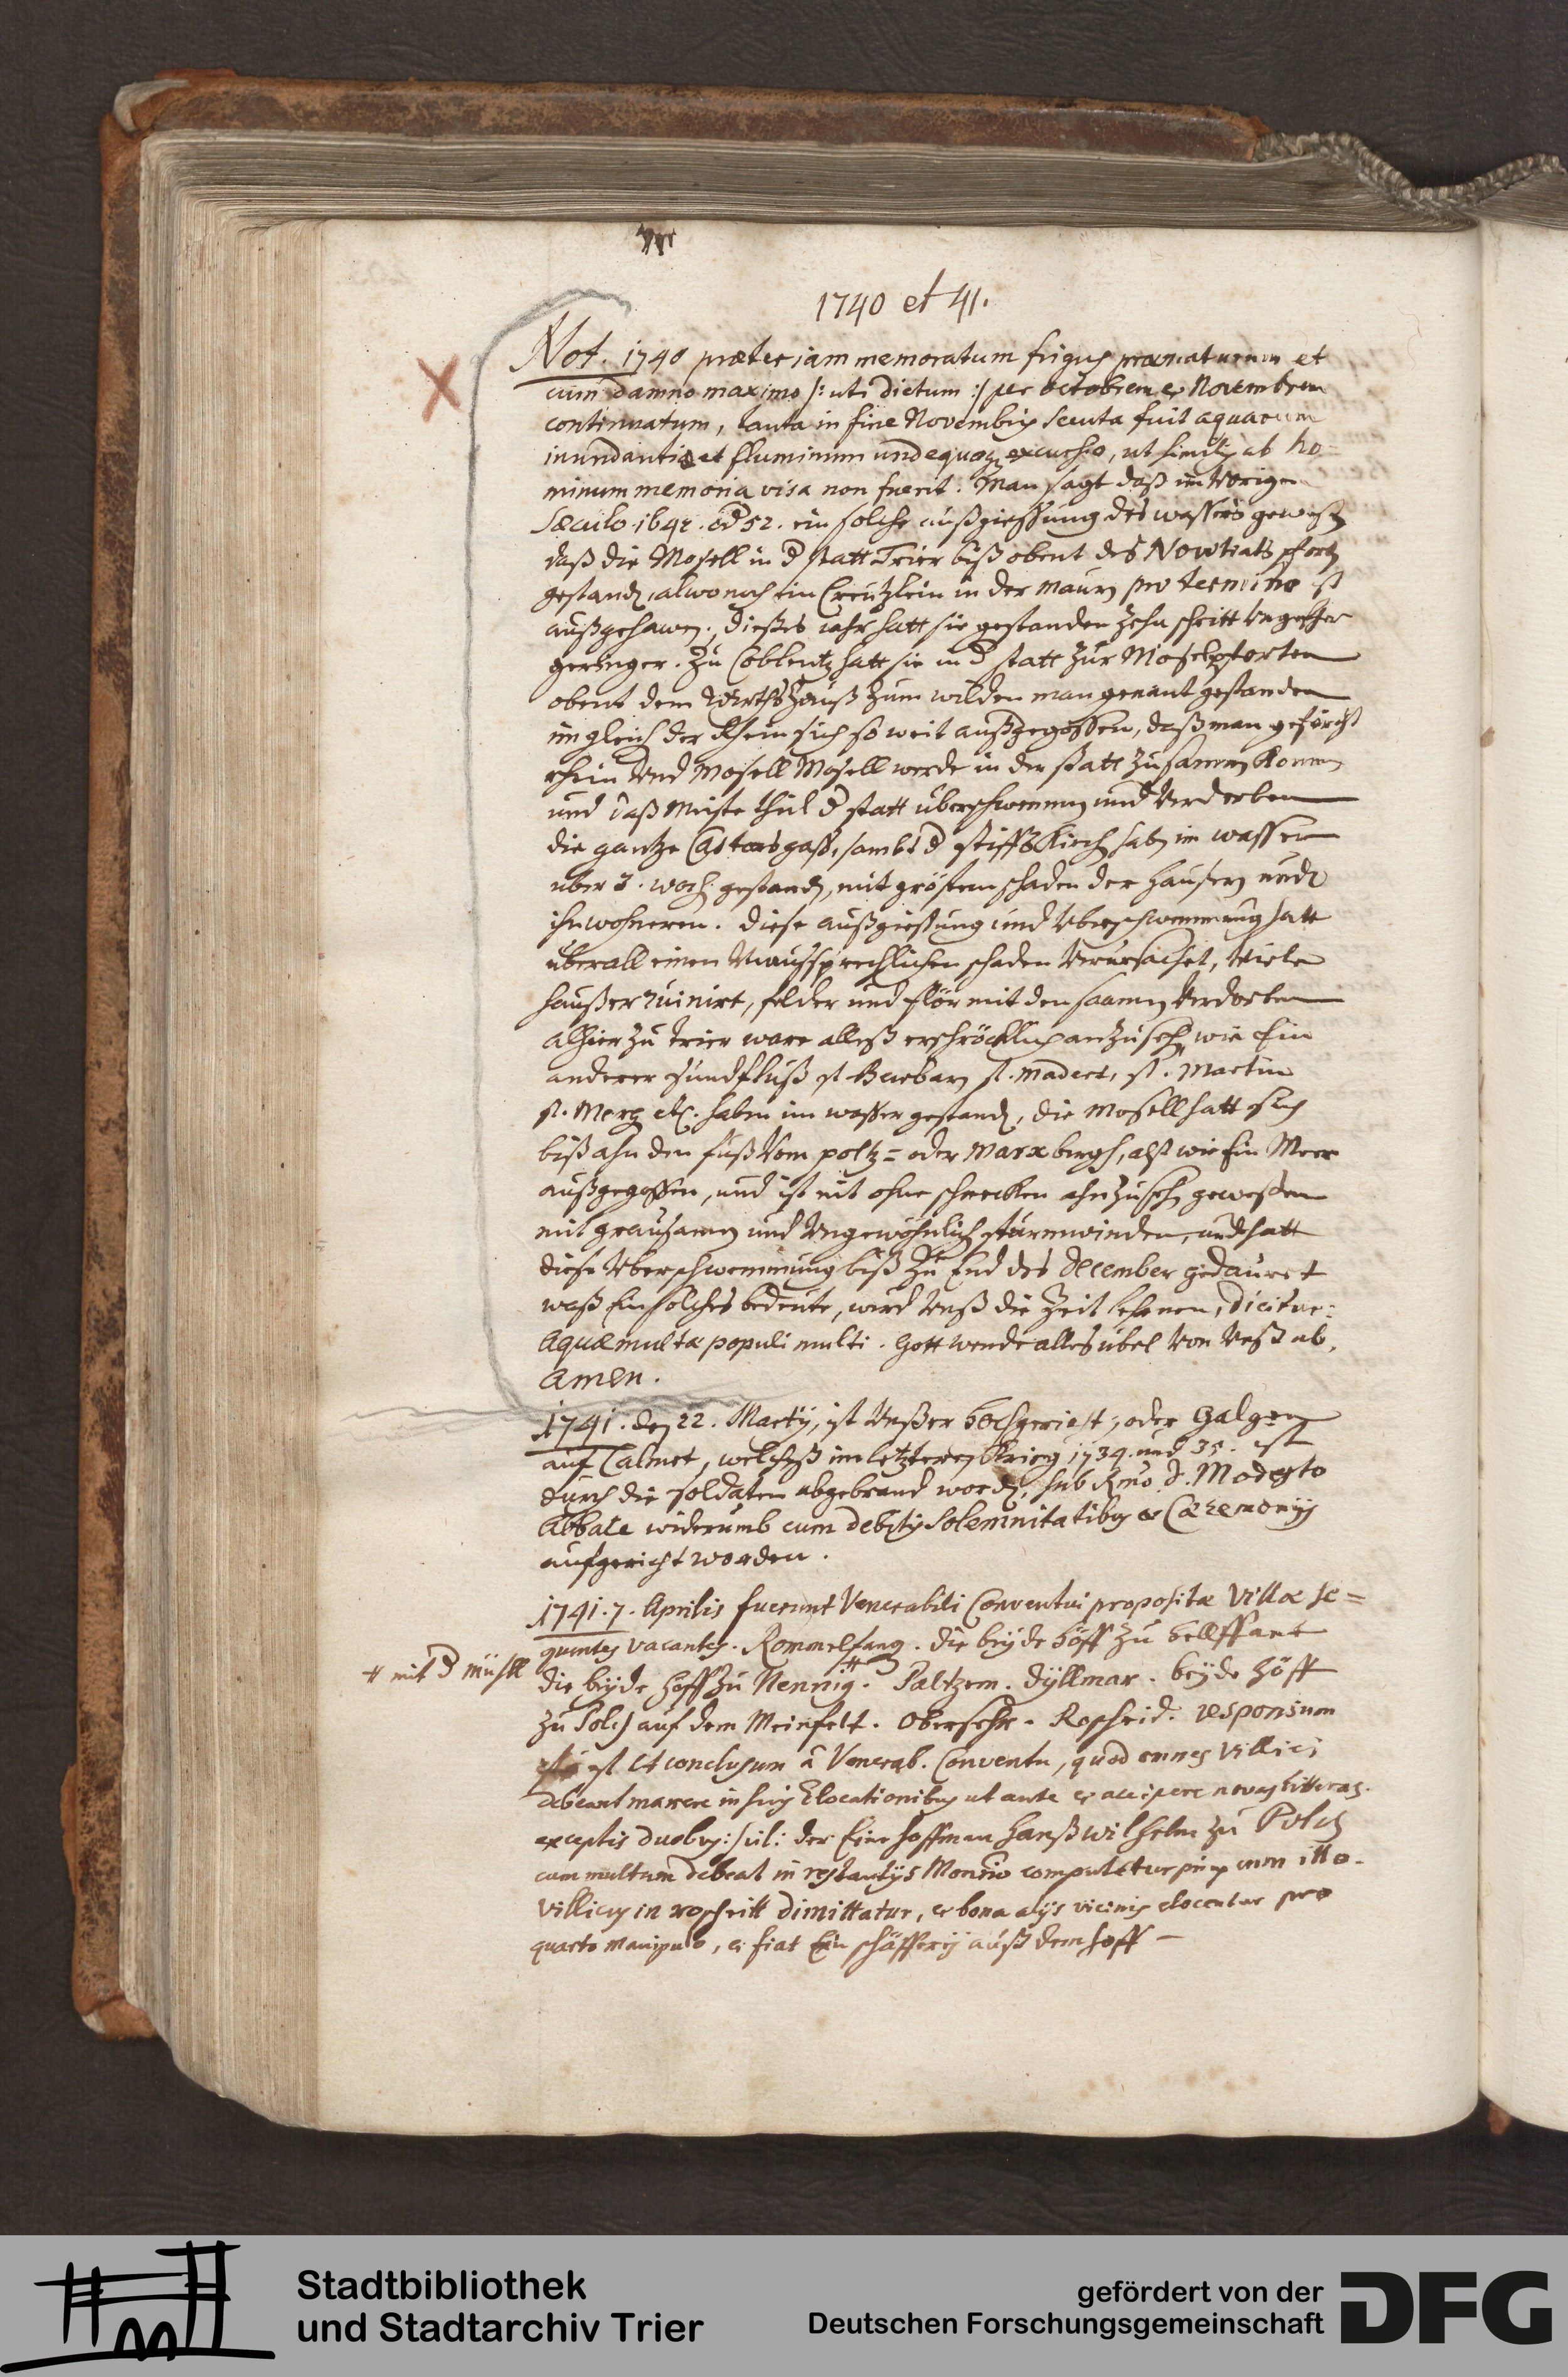 1740 et 41.
Not. 1740 præter iam memoratum frigus præmaturum et
cum damno maximo |: uti dictum :| per octobrem et Novembrem
continuatum, tanta in fine Novembris secuta fuit aquarum
inundantia et fluminum undequaq excursio, ut similis ab ho=
minum memoria visa non fuerit. Man sagt daß im Vorigen
Sæculo 164 . od 52. ein solche außgiessung des wassers geweß
daß die Mosell in d statt Trier biß obent des Novitiats pfort
gestand, alwo noch ein Creutzlein in der Maur pro termino ist
außgehawen; dießes iahr hatt sie gestanden Zehn schritt Ungefehr
geringer. Zu Coblentz hatt sie in d statt Zur Moselpforten
obent dem Wirthshauß Zum wilden man genant gestanden
im gleich der Rhein sich so weit außgegossen, daß man geförcht
rhein Und Mosell Mosell werde in der statt Zusamen Komen
und daß meiste theil d statt überschwemmen und Verderben
die gantze Castorsgaß, sambt d stifftskirch hab im wasser
uber 3. woch gestand, mit gröstem schaden der Hausern undt
ihnwohneren. diese außgiessung und Uberschwemmung hatt
überall einen Unaussprechlichen schaden Verursachet, Viele
haußer ruinirt, felder und flör mit den saamen Verdorben
alhier zu Trier ware alleß erschröcklich anzusehen wie Ein
anderer sündfluß st Barbara st. Madert, st. Martin
st. Merg etc. haben im wasser gestand, die Mosell hatt sich
biß ahn den fuß Vom poltz= oder Marxbergh, alß wie Ein Meer
außgegossen, und ist nit ohne schrecken ahnzusehen gewessen
mit grausamen und Ungewöhnlich sturmwinden, undt hatt
diese Uberschwemmung biß zu End des December gedauret
waß Ein solches bedeute, wird Unß die Zeit lehrnen, dicitur:
Aquæ multæ populi multi. Gott wende alles übel Von Unß ab.
Amen.
1741. den 22. Martij, ist Unßer hochgericht, oder Galgen
auf Calmet, welcheß im letzteren Krieg 1734. und 35. ist
durch die soldaten abgebrand word, sub Rmo d. Modesto
Abbate widerumb cum debitis Solemnitatibus et Cæremonijs
aufgericht worden.
1741. 7. Aprilis fuerunt Venerabili Conventui propositæ Villæ se=
quentes vacantes. Rommelfang. die beyde höff zu bellffang
# mit d mühll
die beyde höff zu Nennig. # Paltzem. Dyllmar. beyde höff
zu Polch auf dem Meinfelt. Obersehr. Roscheid. responsum
est et conclusum â Venerab. Conventu, quod omnes Villici
debeant manere in suis Elocationibus ut ante et accipere novas litteras.
exceptis duobus: scil: der Eine hoffman Hanß wilhelm zu Polch
cum multum debeat in restantijs Mon computetur prius cum illo.
Villicus in roscheitt dimittatur, et bona alijs vicinis elocentur pro
quarto manipulo, et fiat Ein schäfferij auß dem hoff —
Stadtbibliothek
und Stadtarchiv Trier
gefördert von der
Deutschen Forschungsgemeinschaft
DFG